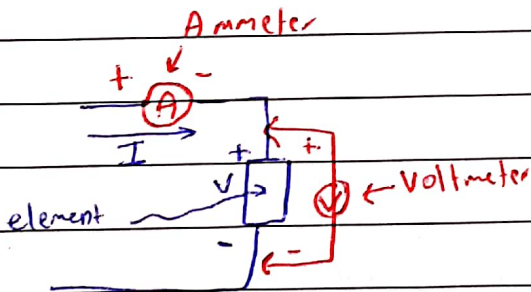 Ammeter
+ A -
I
+ +
V V Voltmeter
element
- -